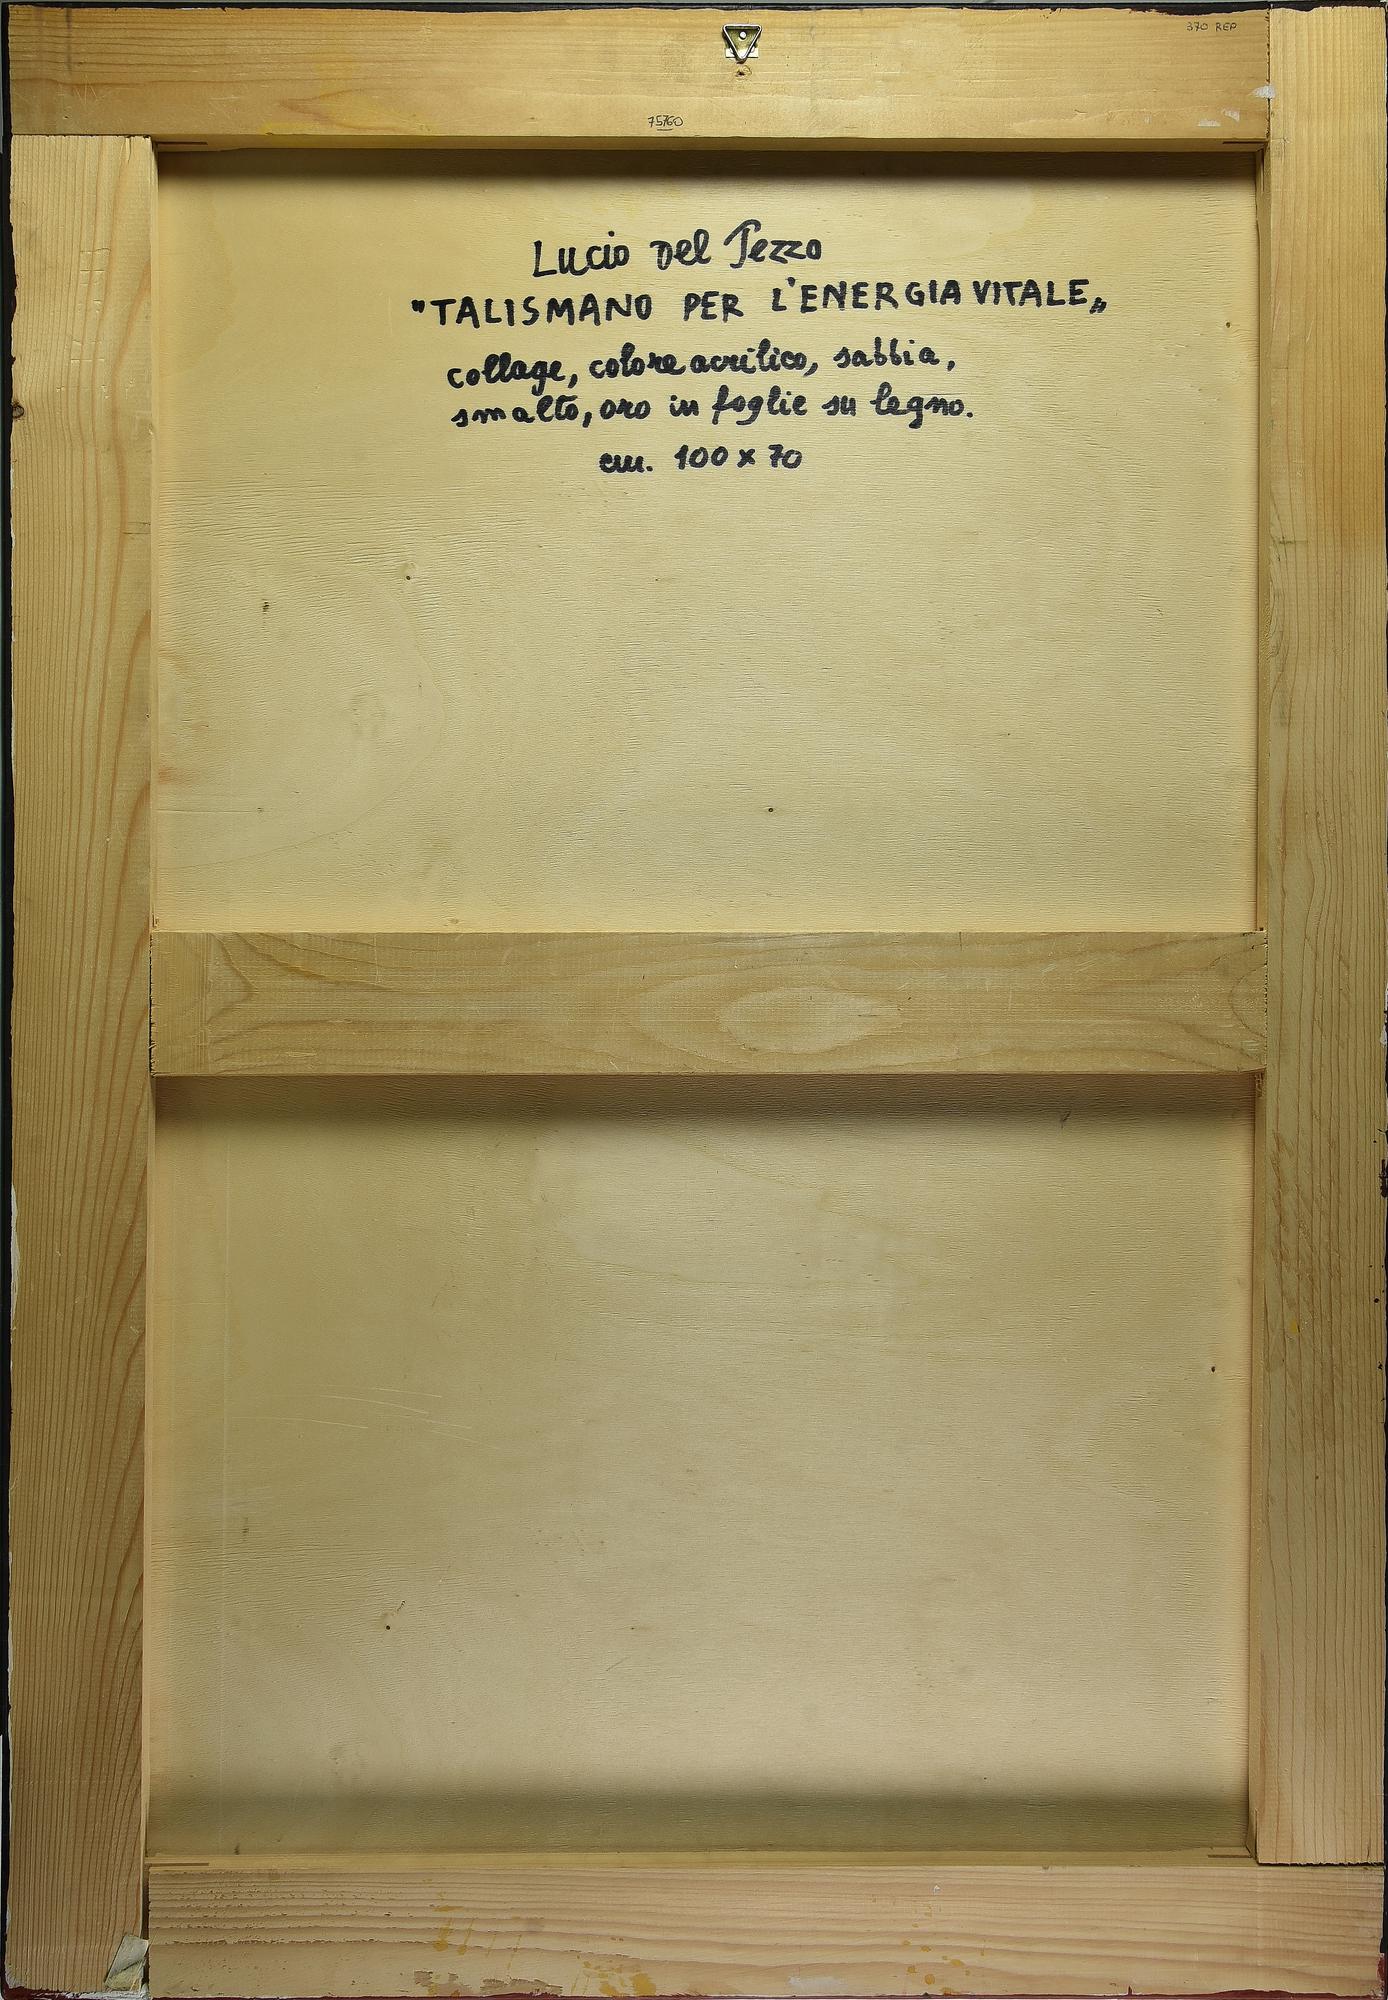 370 REP
75760
Lucio Del Pezzo
"TALISMANO PER L'ENERGIA VITALE„
collage, colore acrilico, sabbia,
smalto, oro in foglie su legno.
cm. 100 x 70